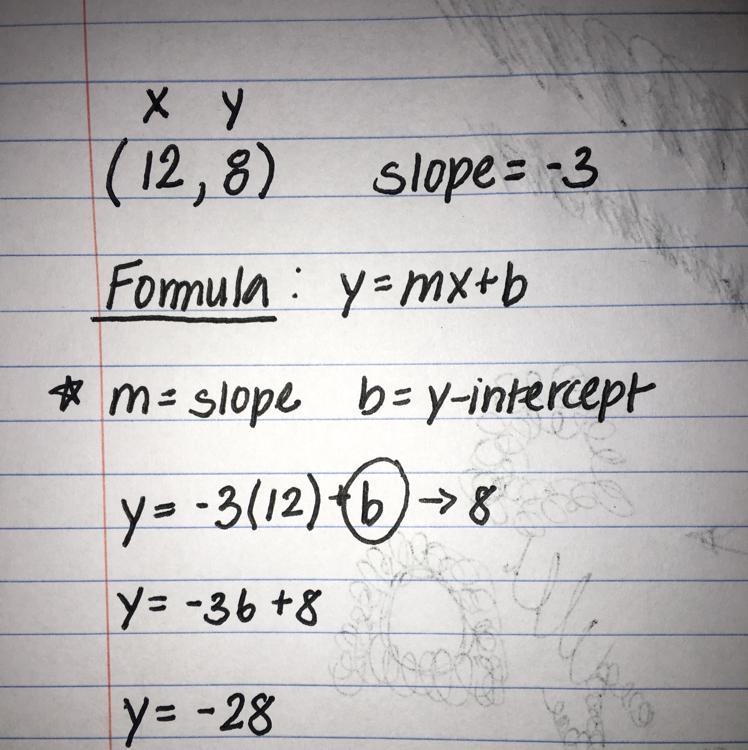 x y
(12, 8) slope = -3
Formula: y=mx+b
☆ m= slope b= y-intercept
y= -3(12)+b → 8
y= -36 +8
y= -28